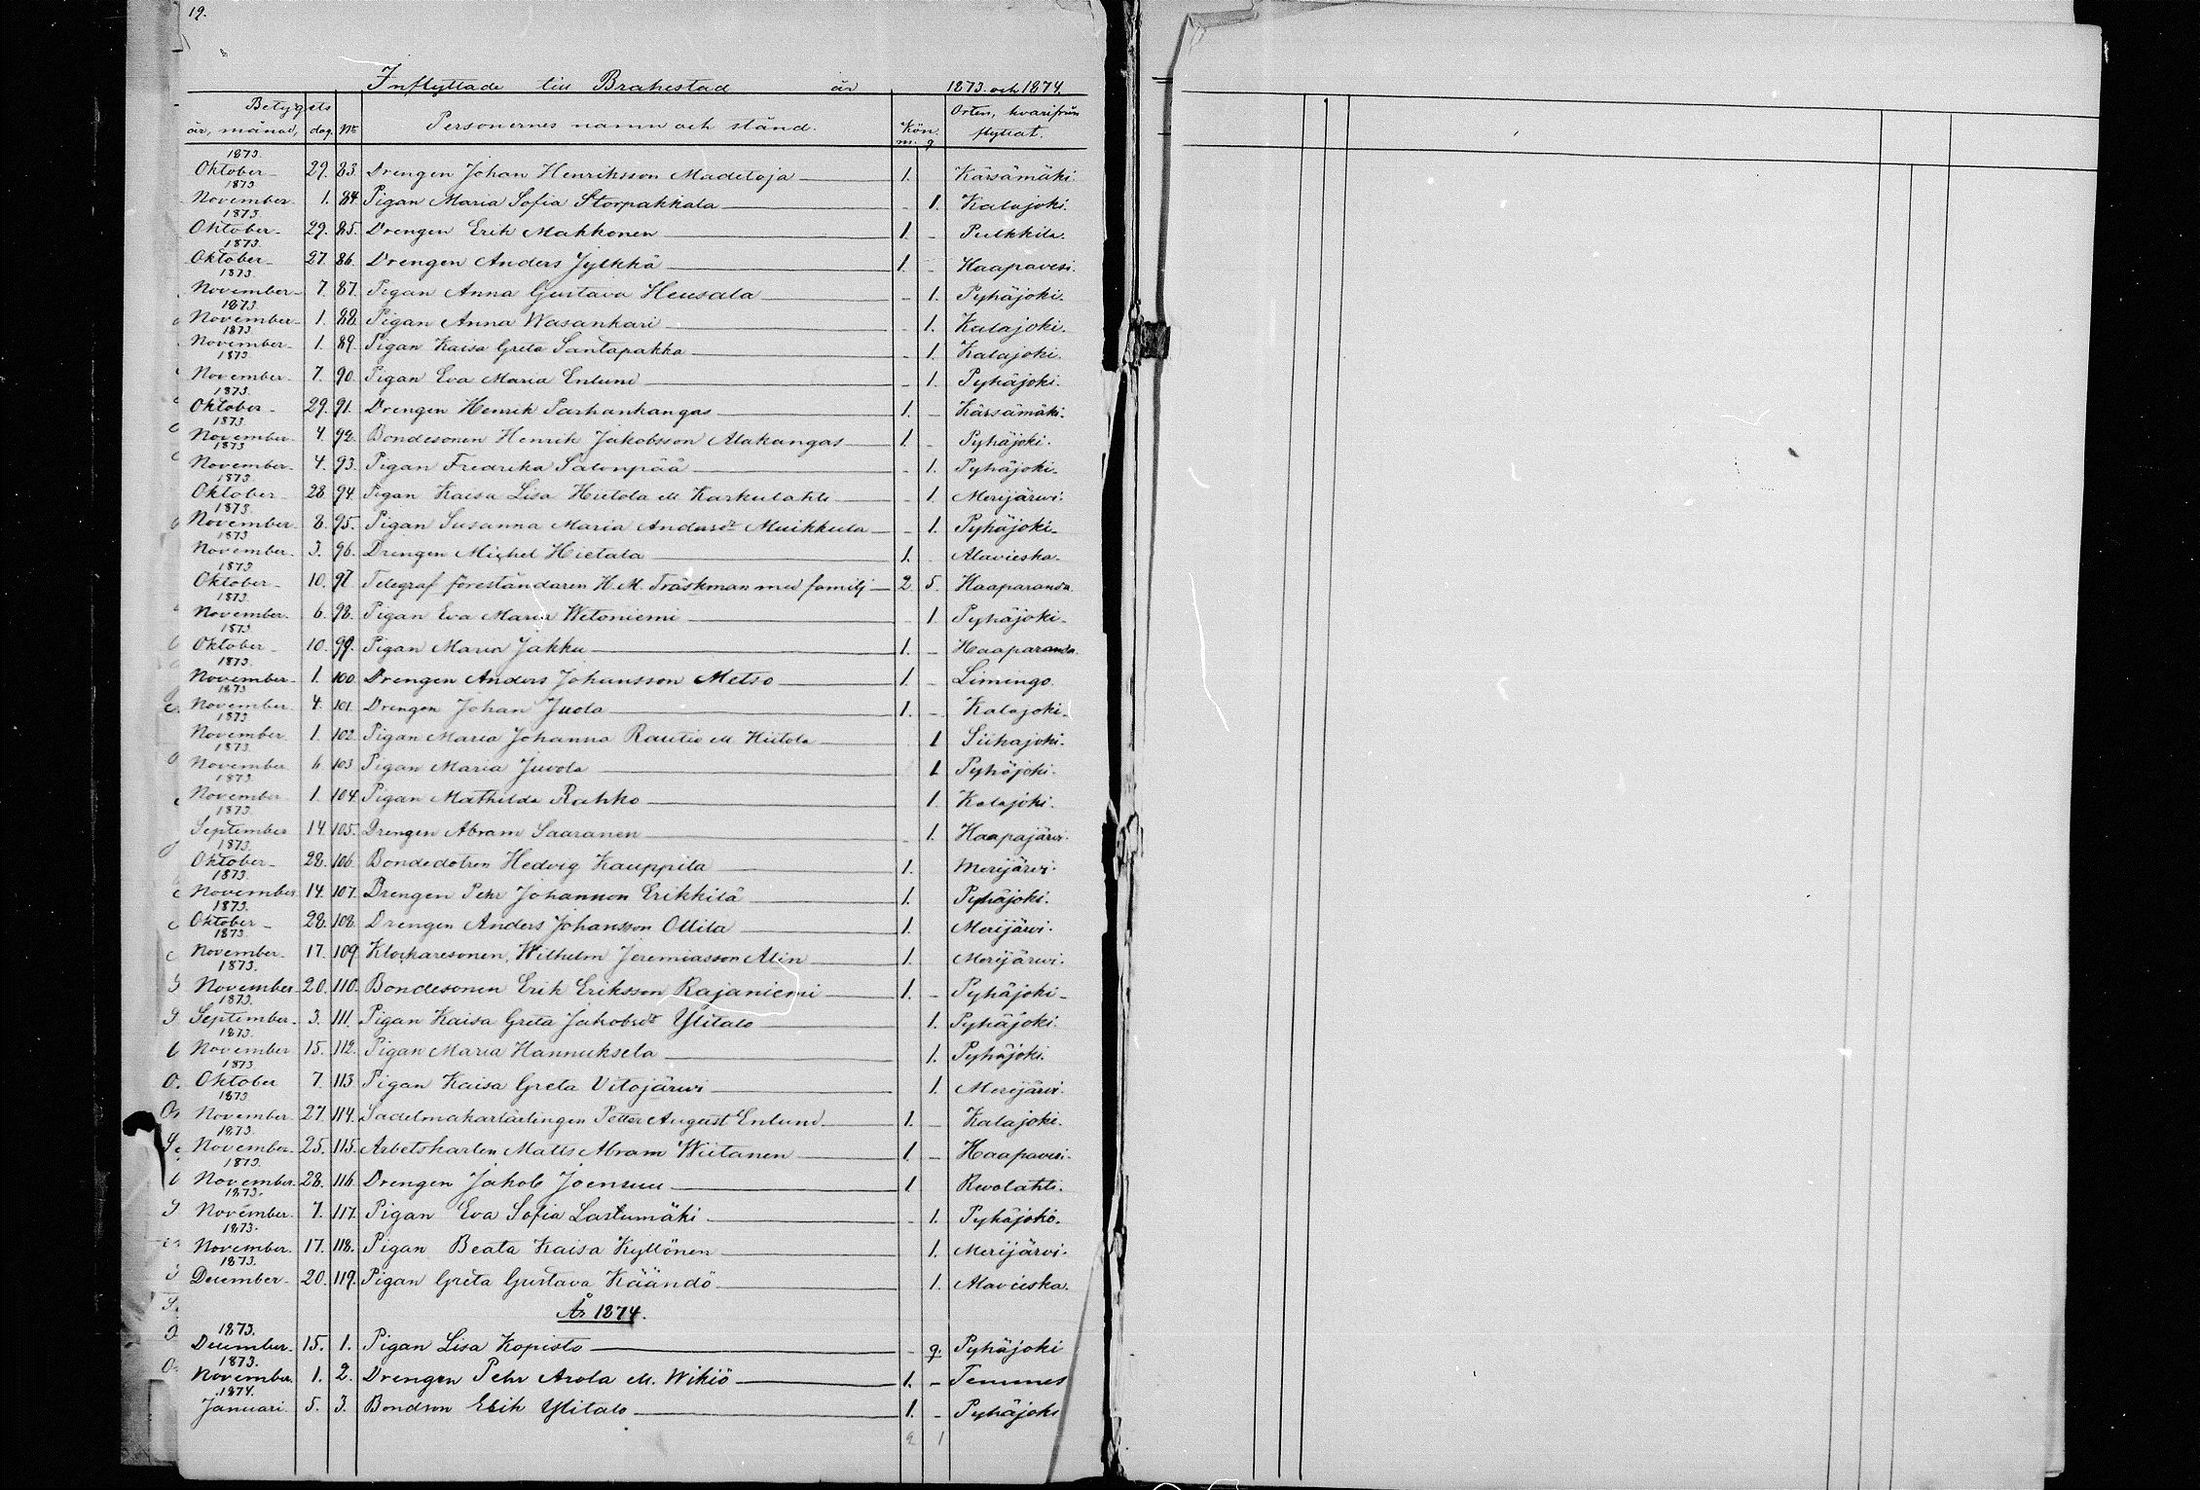 19.
Inflyttade till Brahestad år 1873 och 1874.
Betygets
Orten, hvarifrån
år, månad, dag. No Personernes namn och stånd. Kön. flyttat.
m. q
1873.
Oktober 29. 83. Drengen Johan Henriksson Madetoja 1. Kärsämäki.
1873
November 1. 84. Pigan Maria Sofia Storpakkala - 1. Kalajoki.
1873.
Oktober 29. 85. Drengen Erik Makkonen 1. - Pulkkila.
1873.
Oktober 27. 86. Drengen Anders Jylkkä 1. - Haapavesi.
1873.
November 7. 87. Pigan Anna Gustava Heusala - 1. Pyhäjoki.
1873.
November 1. 88. Pigan Anna Wasankari - 1. Kalajoki.
1873
November 1. 89. Pigan Kaisa Greta Santapakka - 1. Kalajoki.
1873.
November 7. 90. Pigan Eva Maria Enlund - 1. Pyhäjoki.
1873.
Oktober 29. 91. Drengen Henrik Parhankangas 1. Kärsämäki.
1873
November 4. 92. Bondesonen Henrik Jakobsson Alakangas 1. - Pyhäjoki.
1873
November 4. 93. Pigan Fredrika Salonpää - 1. Pyhäjoki.
1873.
Oktober 28 94. Pigan Kaisa Lisa Hietola M Karkulahti - 1. Merijärwi.
1873.
November 8. 95. Pigan Susanna Maria Andersdr Muikkula - 1. Pyhäjoki.
1873
November 3. 96. Drengen Michel Hietala 1. Alavieska.
1873
Oktober 10. 97 Telegraf föreståndaren H. M. Träskman med familj 2 5. Haaparanda
1873.
November 6. 98. Pigan Eva Maria Wetoniemi 1 Pyhäjoki.
1873.
Oktober 10. 99. Pigan Maria Jakku 1. - Haaparanda.
1873.
November 1. 100. Drengen Anders Johansson Metso 1. - Limingo.
1873
November 4. 101. Drengen Johan Juola 1. - Kalajoki.
1873
November 1. 102. Pigan Maria Johanna Rautio M Hietola 1 Siikajoki.
1873.
November 6 103 Pigan Maria Juvola 1 Pyhäjoki.
1873.
November 1. 104. Pigan Mathilda Rahko 1. Kalajoki.
1873.
September 14. 105. Drengen Abram Saaranen - 1. Haapajärvi.
1873.
Oktober 28. 106. Bondedotren Hedvig Kauppila 1. Merijärvi.
1873.
November 14. 107. Drengen Pehr Johannon Erikkilä 1. Pyhäjoki.
1873.
Oktober 28. 108. Drengen Anders Johansson Ollila 1. Merijärvi.
1873.
November 17. 109. Klockaresonen, Wilhelm Jeremiasson Alin 1. Merijärwi.
1873.
November 20. 110. Bondesonen Erik Eriksson Rajaniemi 1. - Pyhäjoki
1873.
September 3. 111. Pigan Kaisa Greta Jakobsdr Ylitalo 1. Pyhäjoki.
1873.
November 15. 112. Pigan Maria Hannuksela 1. Pyhäjoki.
1873
Oktober 7. 113 Pigan Kaisa Greta Vitojärwi 1. Merijärvi.
1873
November 27 114. Sadelmakarlärlingen Petter August Enlund 1. - Kalajoki.
1873.
November 25. 115. Arbetskarlen Matts Abram Wiitanen 1. - Haapavesi.
1873.
November 28. 116. Drengen Jakob Joensuu 1 Revolahti.
1873.
November 7. 117. Pigan Eva Sofia Lastumäki - 1. Pyhäjoki.
1873.
November 17. 118. Pigan Beata Kaisa Kyllönen 1. Merijärvi.
1873.
December 20. 119. Pigan Greta Gustava Käändö 1. Alavieska.
År 1874.
1873.
December 15. 1. Pigan Lisa Kopisto - q. Pyhäjoki
1873.
November 1. 2. Drengen Pehr Arola M. Wikiö 1. - Temmes
1874.
Januari 5. 3. Bondson Erik Ylitalo 1. - Pyhäjoki
2 1